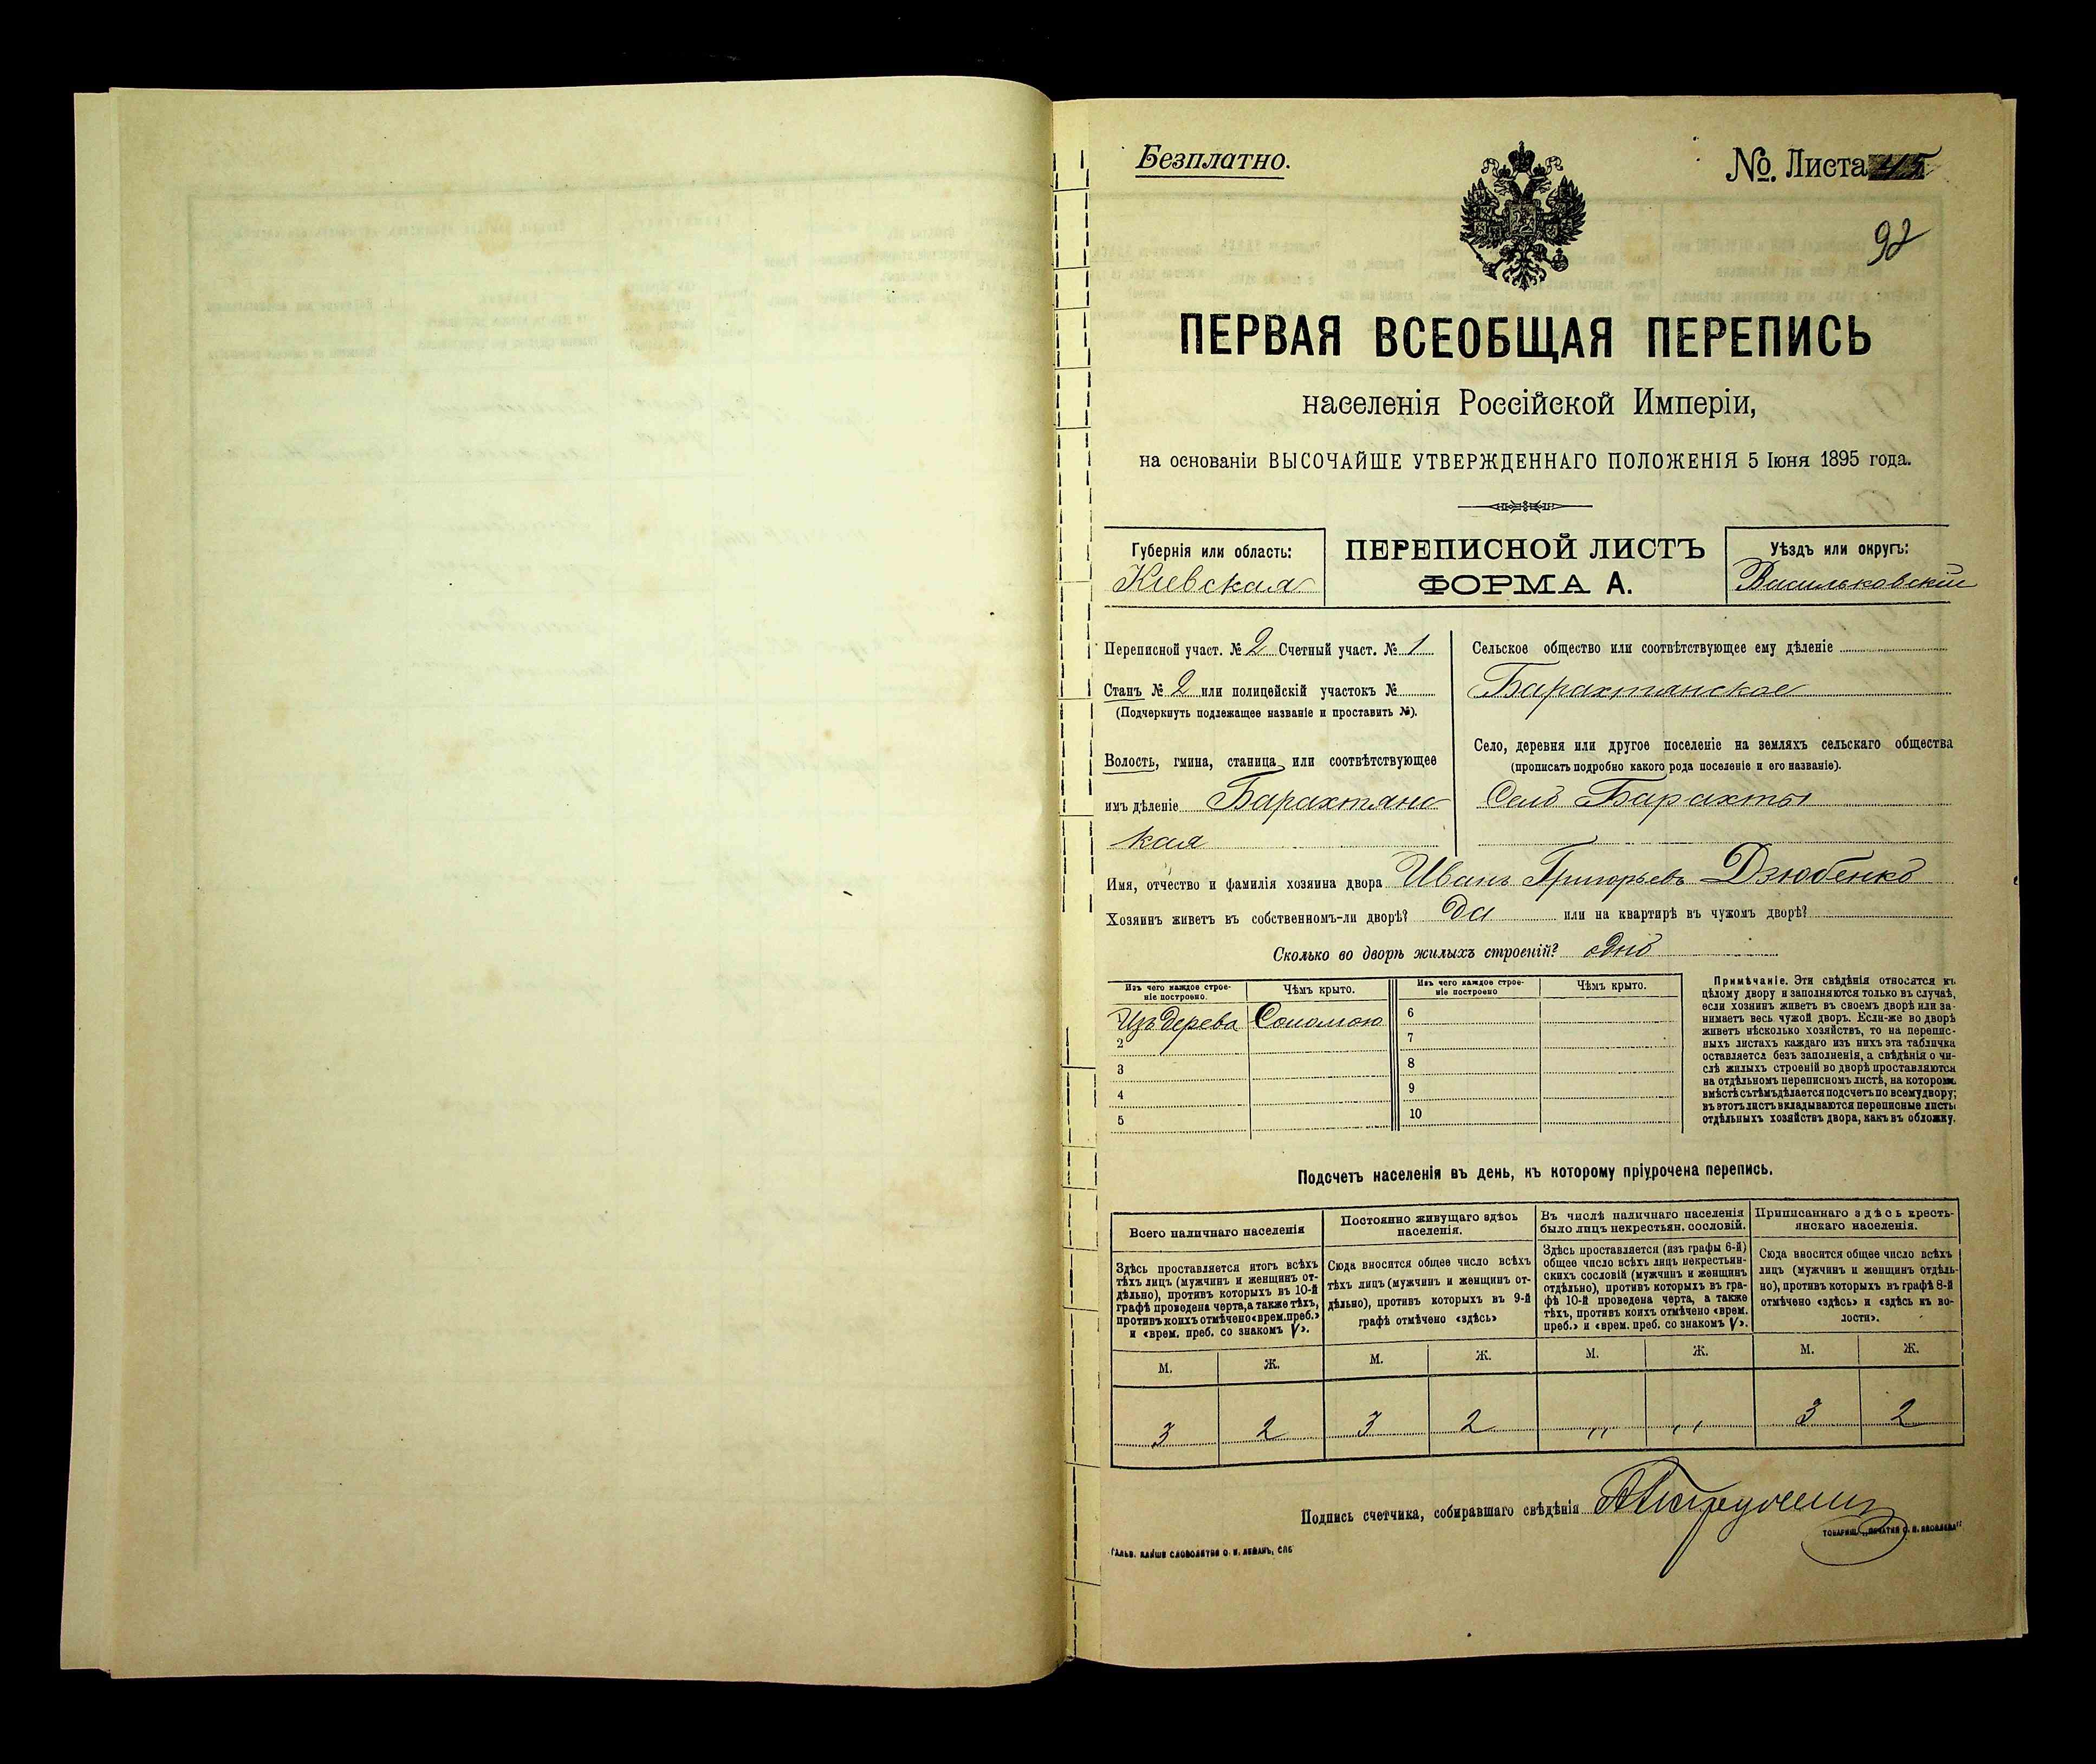 Безплатно.
№. Листа 45
92
ПЕРВАЯ ВСЕОБЩАЯ ПЕРЕПИСЬ
населенія Россійской Имперіи,
на основаніи ВЫСОЧАЙШЕ УТВЕРЖДЕННАГО ПОЛОЖЕНІЯ 5 Іюня 1895 года.
Губернія или область:
Кіевская
ПЕРЕПИСНОЙ ЛИСТЪ
ФОРМА А.
Уѣздъ или округъ:
Васильковскій
Переписной участ. № 2 Счетный участ. № 1
Станъ № 2 или полицейскій участокъ №
(Подчеркнуть подлежащее названіе и проставить №).
Волость, гмина, станица или соотвѣтствующее
имъ дѣленіе Барахтянс
кая
Сельское общество или соотвѣтствующее ему дѣленіе
Барахтянское
Село, деревня или другое поселеніе на земляхъ сельскаго общества
(прописать подробно какого рода поселеніе и его названіе).
Село Барахты
Имя, отчество и фамилія хозяина двора Иванъ Григорьевъ Дзюбенко
Хозяинъ живетъ въ собственномъ-ли дворѣ? Да или на квартирѣ въ чужомъ дворѣ?
Сколько во дворѣ жилыхъ строеній? одно
Изъ чего каждое строе-
ніе построено.
Чѣмъ крыто.
Изъ чего каждое строе-
ніе построено
Чѣмъ крыто.
Изъ дерева Соломою 6
2 7
3 8
4 9
5 10
Примѣчаніе. Эти свѣдѣнія относятся къ
цѣлому двору и заполняются только въ случаѣ,
если хозяинъ живетъ въ своемъ дворѣ или за-
нимаетъ весь чужой дворъ. Если-же во дворѣ
живетъ нѣсколько хозяйствъ, то на перепис-
ныхъ листахъ каждаго изъ нихъ эта табличка
оставляется безъ заполненія, а свѣдѣнія о чи-
слѣ жилыхъ строеній во дворѣ проставляются
на отдѣльномъ переписномъ листѣ, на которомъ
вмѣстѣ съ тѣмъ дѣлается подсчетъ по всему двору;
въ этотъ листъ вкладываются переписные листы
отдѣльныхъ хозяйствъ двора, какъ въ обложку.
Подсчетъ населенія въ день, къ которому пріурочена перепись.
Всего наличнаго населенія
Здѣсь проставляется итогъ всѣхъ
тѣхъ лицъ (мужчинъ и женщинъ от-
дѣльно), противъ которыхъ въ 10-й
графѣ проведена черта, а также тѣхъ,
противъ коихъ отмѣчено «врем. преб.»
и «врем. преб. со знакомъ V».
Постоянно живущаго здѣсь
населенія.
Сюда вносится общее число всѣхъ
тѣхъ лицъ (мужчинъ и женщинъ от-
дѣльно), противъ которыхъ въ 9-й
графѣ отмѣчено «здѣсь»
Въ числѣ наличнаго населенія
было лицъ некрестьян. сословій.
Здѣсь проставляется (изъ графы 6-й)
общее число всѣхъ лицъ некрестьян-
скихъ сословій (мужчинъ и женщинъ
отдѣльно), противъ которыхъ въ гра-
фѣ 10-й проведена черта, а также
тѣхъ, противъ коихъ отмѣчено «врем.
преб.» и «врем. преб. со знакомъ V».
Приписаннаго здѣсь кресть-
янскаго населенія.
Сюда вносится общее число всѣхъ
лицъ (мужчинъ и женщинъ отдѣль-
но), противъ которыхъ въ графѣ 8-й
отмѣчено «здѣсь» и «здѣсь къ во-
лости».
М. Ж. М. Ж. М. Ж. М. Ж.
3 2 3 2 ,, ,, 3 2
Подпись счетчика, собиравшаго свѣдѣнія
ГАЛЬВ. КЛИШЕ СЛОВОЛИТНИ О. И. ЛЕМАНЪ, СПБ
ТОВАРИЩ. „ПЕЧАТНЯ С. П. ЯКОВЛЕВА“